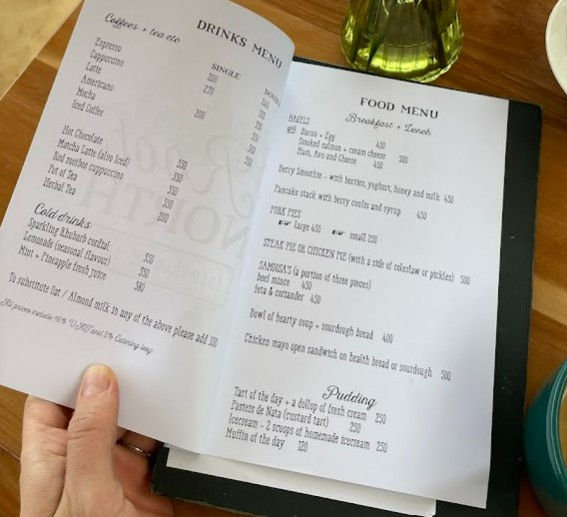 Coffees + tea etc
DRINKS MENU
SINGLE
Espresso 200
Cappuccino 270
Latte
Americano
Mocha 200
Iced Coffee
Hot Chocolate 350
Matcha Latte (also iced) 350
Red rooibos cappuccino 350
Pot of Tea 350
Herbal Tea 200
Cold drinks
Sparkling Rhubarb cordial 350
Lemonade (seasonal flavour) 350
Mint + Pineapple fresh juice 380
To substitute Oat / Almond milk in any of the above please add 100
All prices include 16% VAT and 2% Catering levy
FOOD MENU
Breakfast + Lunch
BAGELS
Bacon + Egg 450
Smoked salmon + cream cheese 505
Ham, Avo and Cheese 450
Berry Smoothie - with berries, yoghurt, honey and milk 450
Pancake stack with berry coulis and syrup 450
PORK PIES
large 450 small 250
STEAK PIE OR CHICKEN PIE (with a side of coleslaw or pickles) 500
SAMOOSA'S (a portion of three pieces)
beef mince 450
feta & coriander 450
Bowl of hearty soup + sourdough bread 400
Chicken mayo open sandwich on health bread or sourdough 500
Pudding
Tart of the day + a dollop of fresh cream 250
Pasteis de Nata (custard tart) 250
Icecream - 2 scoops of homemade icecream 250
Muffin of the day 120